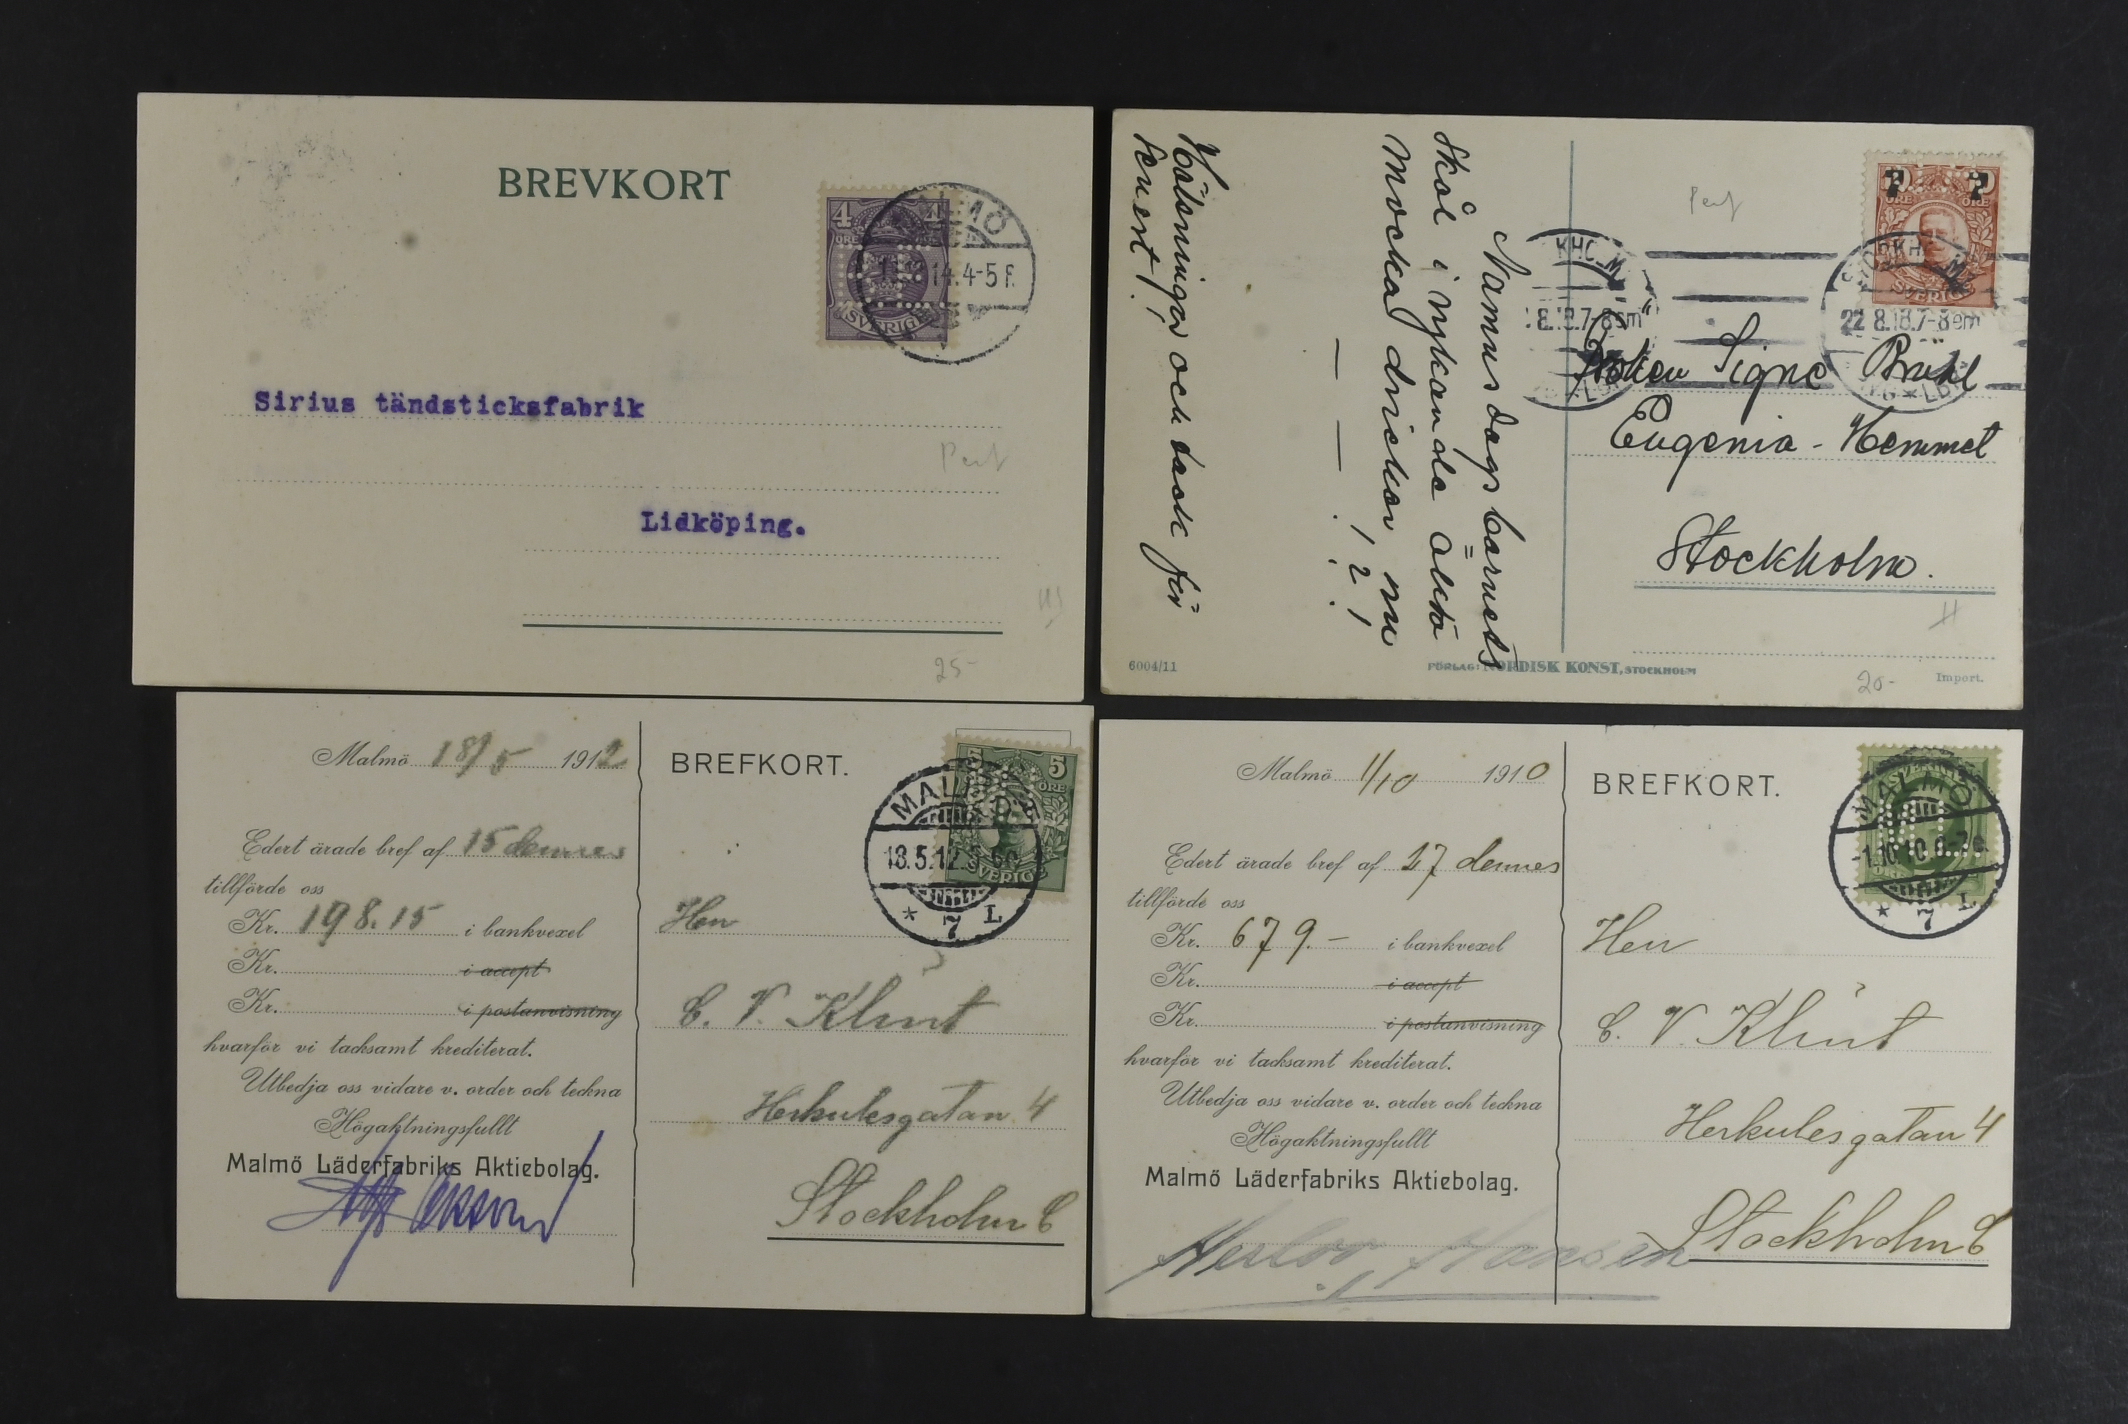 BREVKORT
4 4
ÖRE
SVERIGE
MALMÖ
14.4-5 F.
Sirius tändsticksfabrik
Perf
Lidköping.
25-
Namnsdags barnets
skål i nykanda äkta
mocka dricker nu
! ? !
Hälsningar och tack för
senast!
6004/11
FÖRLAG: NORDISK KONST, STOCKHOLM
Perf
7 7
ÖRE ÖRE
SVERIGE
KHOLM
8.18.7-8em
STOCKHOLM
22 8.18.7-8em
Fröken Signe Brühl
Eugenia-Hemmet
Stockholm.
20-
Import.
Malmö 18/5 1912
Edert ärade bref af 15 dennes
tillförde oss
Kr. 198.15 i bankvexel
Kr. i accept
Kr. i postanvisning
hvarför vi tacksamt krediterat.
Utbedja oss vidare v. order och teckna
Högaktningsfullt
Malmö Läderfabriks Aktiebolag.
BREFKORT.
5
ÖRE
SVERIGE
MALMÖ
18.5.12
* 7 L
Herr
C. V. Klint
Herkulesgatan 4
Stockholm C
Malmö 1/10 1910
Edert ärade bref af 27 dennes
tillförde oss
Kr. 679.- i bankvexel
Kr. i accept
Kr. i postanvisning
hvarför vi tacksamt krediterat.
Utbedja oss vidare v. order och teckna
Högaktningsfullt
Malmö Läderfabriks Aktiebolag.
Herlov Hansen
BREFKORT.
MALMÖ
-1.10.10.6-7e
* 7 L
Herr
C. V. Klint
Herkulesgatan 4
Stockholm C